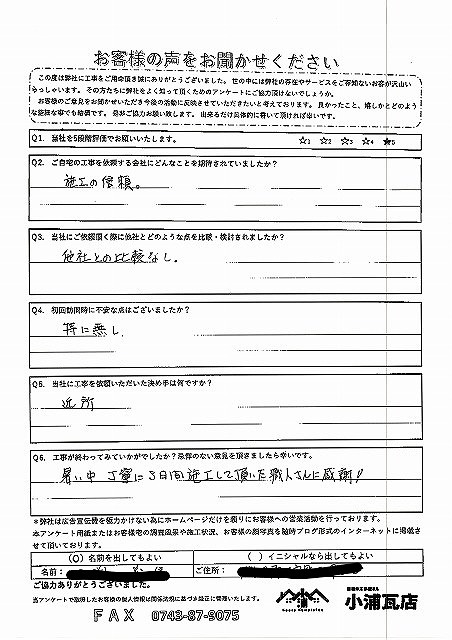 お客様の声をお聞かせください
この度は弊社に工事をご用命頂き誠にありがとうございました。世の中には弊社の存在やサービスをご存知ないお客が沢山い
らっしゃいます。その方たちに弊社をよく知って頂くためのアンケートにご協力頂けないでしょうか。
お客様のご意見をお聞かせいただき今後の活動に反映させていただきたいと考えております。良かったこと、嬉しかとどのよう
な些細な事でも結構です。是非ご協力お願い致します。出来るだけ具体的に書いて頂ければ幸いです。
Q1. 当社を5段階評価でお願いいたします。 ☆1 ☆2 ☆3 ☆4 ★5
Q2. ご自宅の工事を依頼する会社にどんなことを期待されていましたか?
施工の信頼。
Q3. 当社にご依頼頂く際に他社とどのような点を比較・検討されましたか?
他社との比較なし.
Q4. 初回訪問時に不安な点はございましたか?
特に無し.
Q5. 当社に工事を依頼いただいた決め手は何ですか?
近所
Q6. 工事が終わってみていかがでしたか?忌憚のない意見を頂きましたら幸いです。
暑い中 丁寧に3日間施工して頂いた職人さんに感謝!!
*弊社は広告宣伝費を極力かけない為にホームページだけを頼りにお客様への営業活動を行っております。
本アンケート用紙またはお客様宅の調査風景や施工状況、お客様の顔写真を随時ブログ形式のインターネットに掲載さ
せて頂いております。
(O) 名前を出してもよい ( ) イニシャルなら出してもよい
名前: ご住所:
ご協力ありがとうございました。
当アンケートで取得したお客様の個人情報は関係法規に基づき厳正に管理いたします。
小浦瓦店
FAX 0743-87-9075